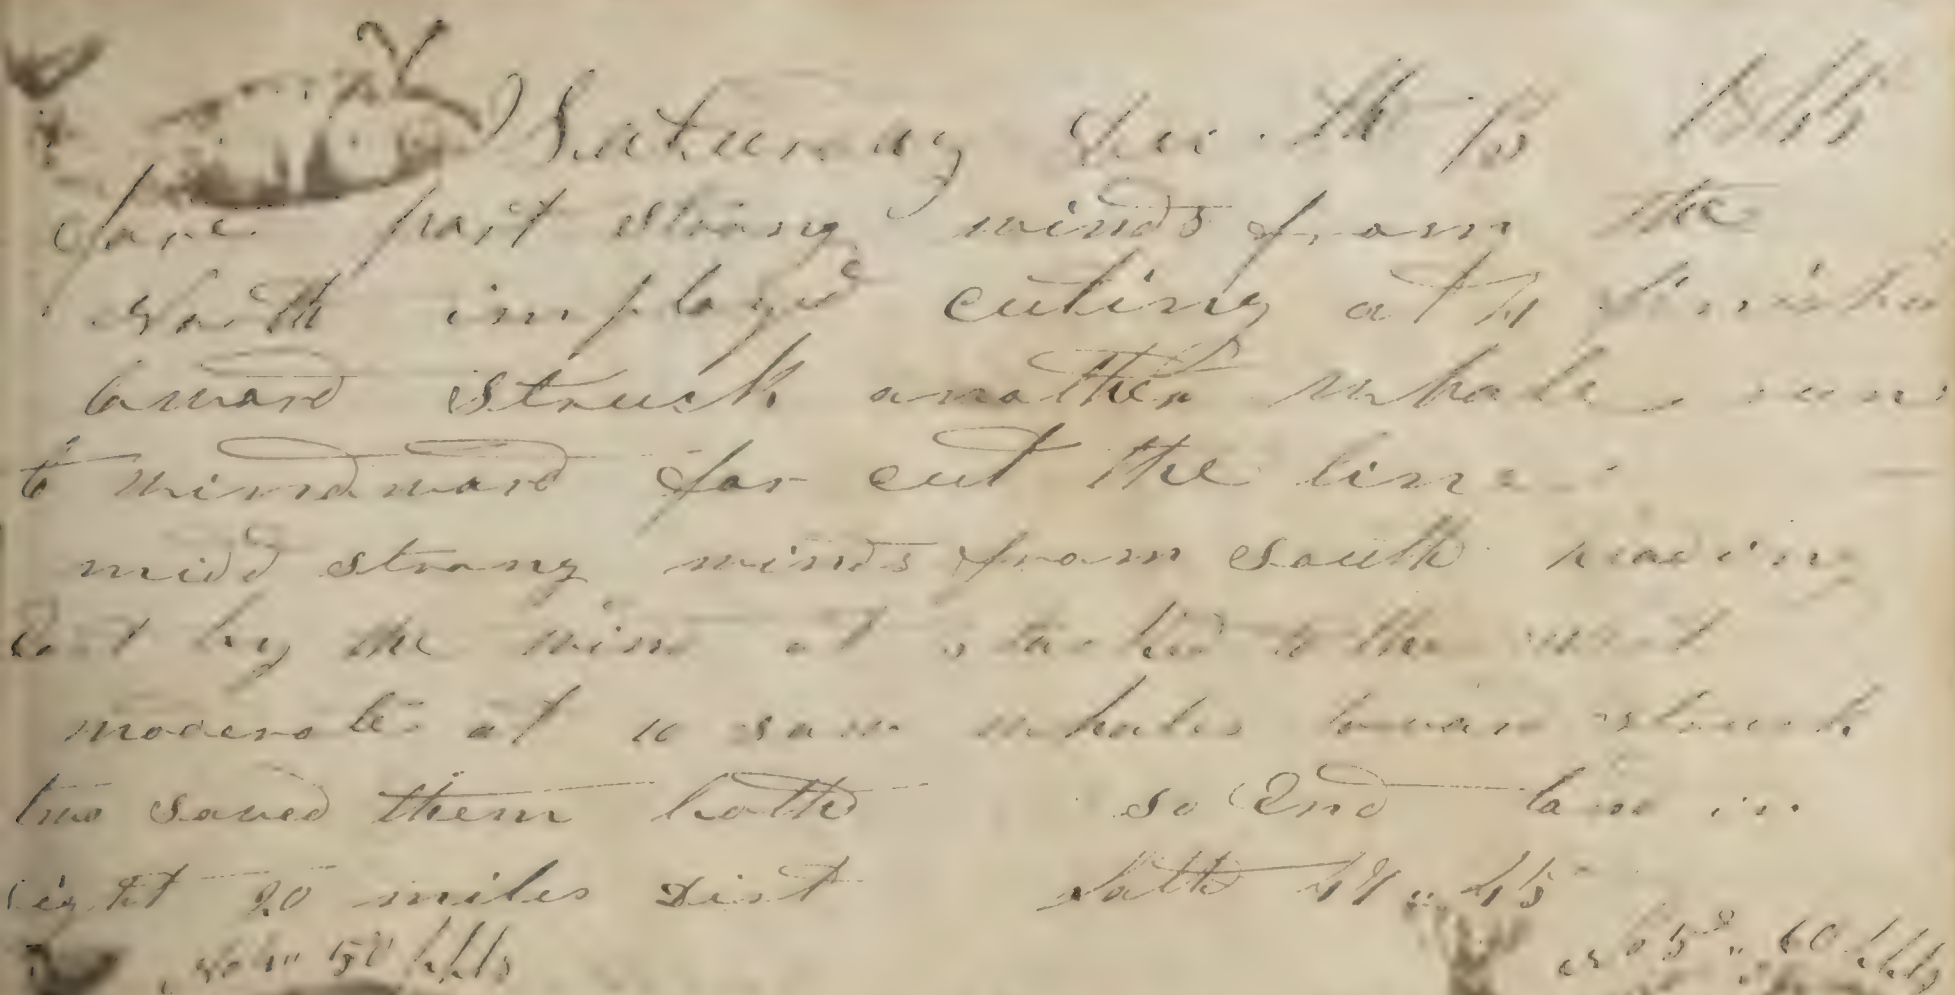 Saturday Dec. th 13 1845
fore part strong winds from the
North imployd cuting at 4 finishd
loward struck another whale run
to windward far cut the line
midd strong winds from South heading
East by the wind at tacked to the west
moderate at 10 saw whales loward struck
two saved them both so End land in
sight 20 miles Dist Latt 47 " 45
50 bbls No 5 " 60 bbls